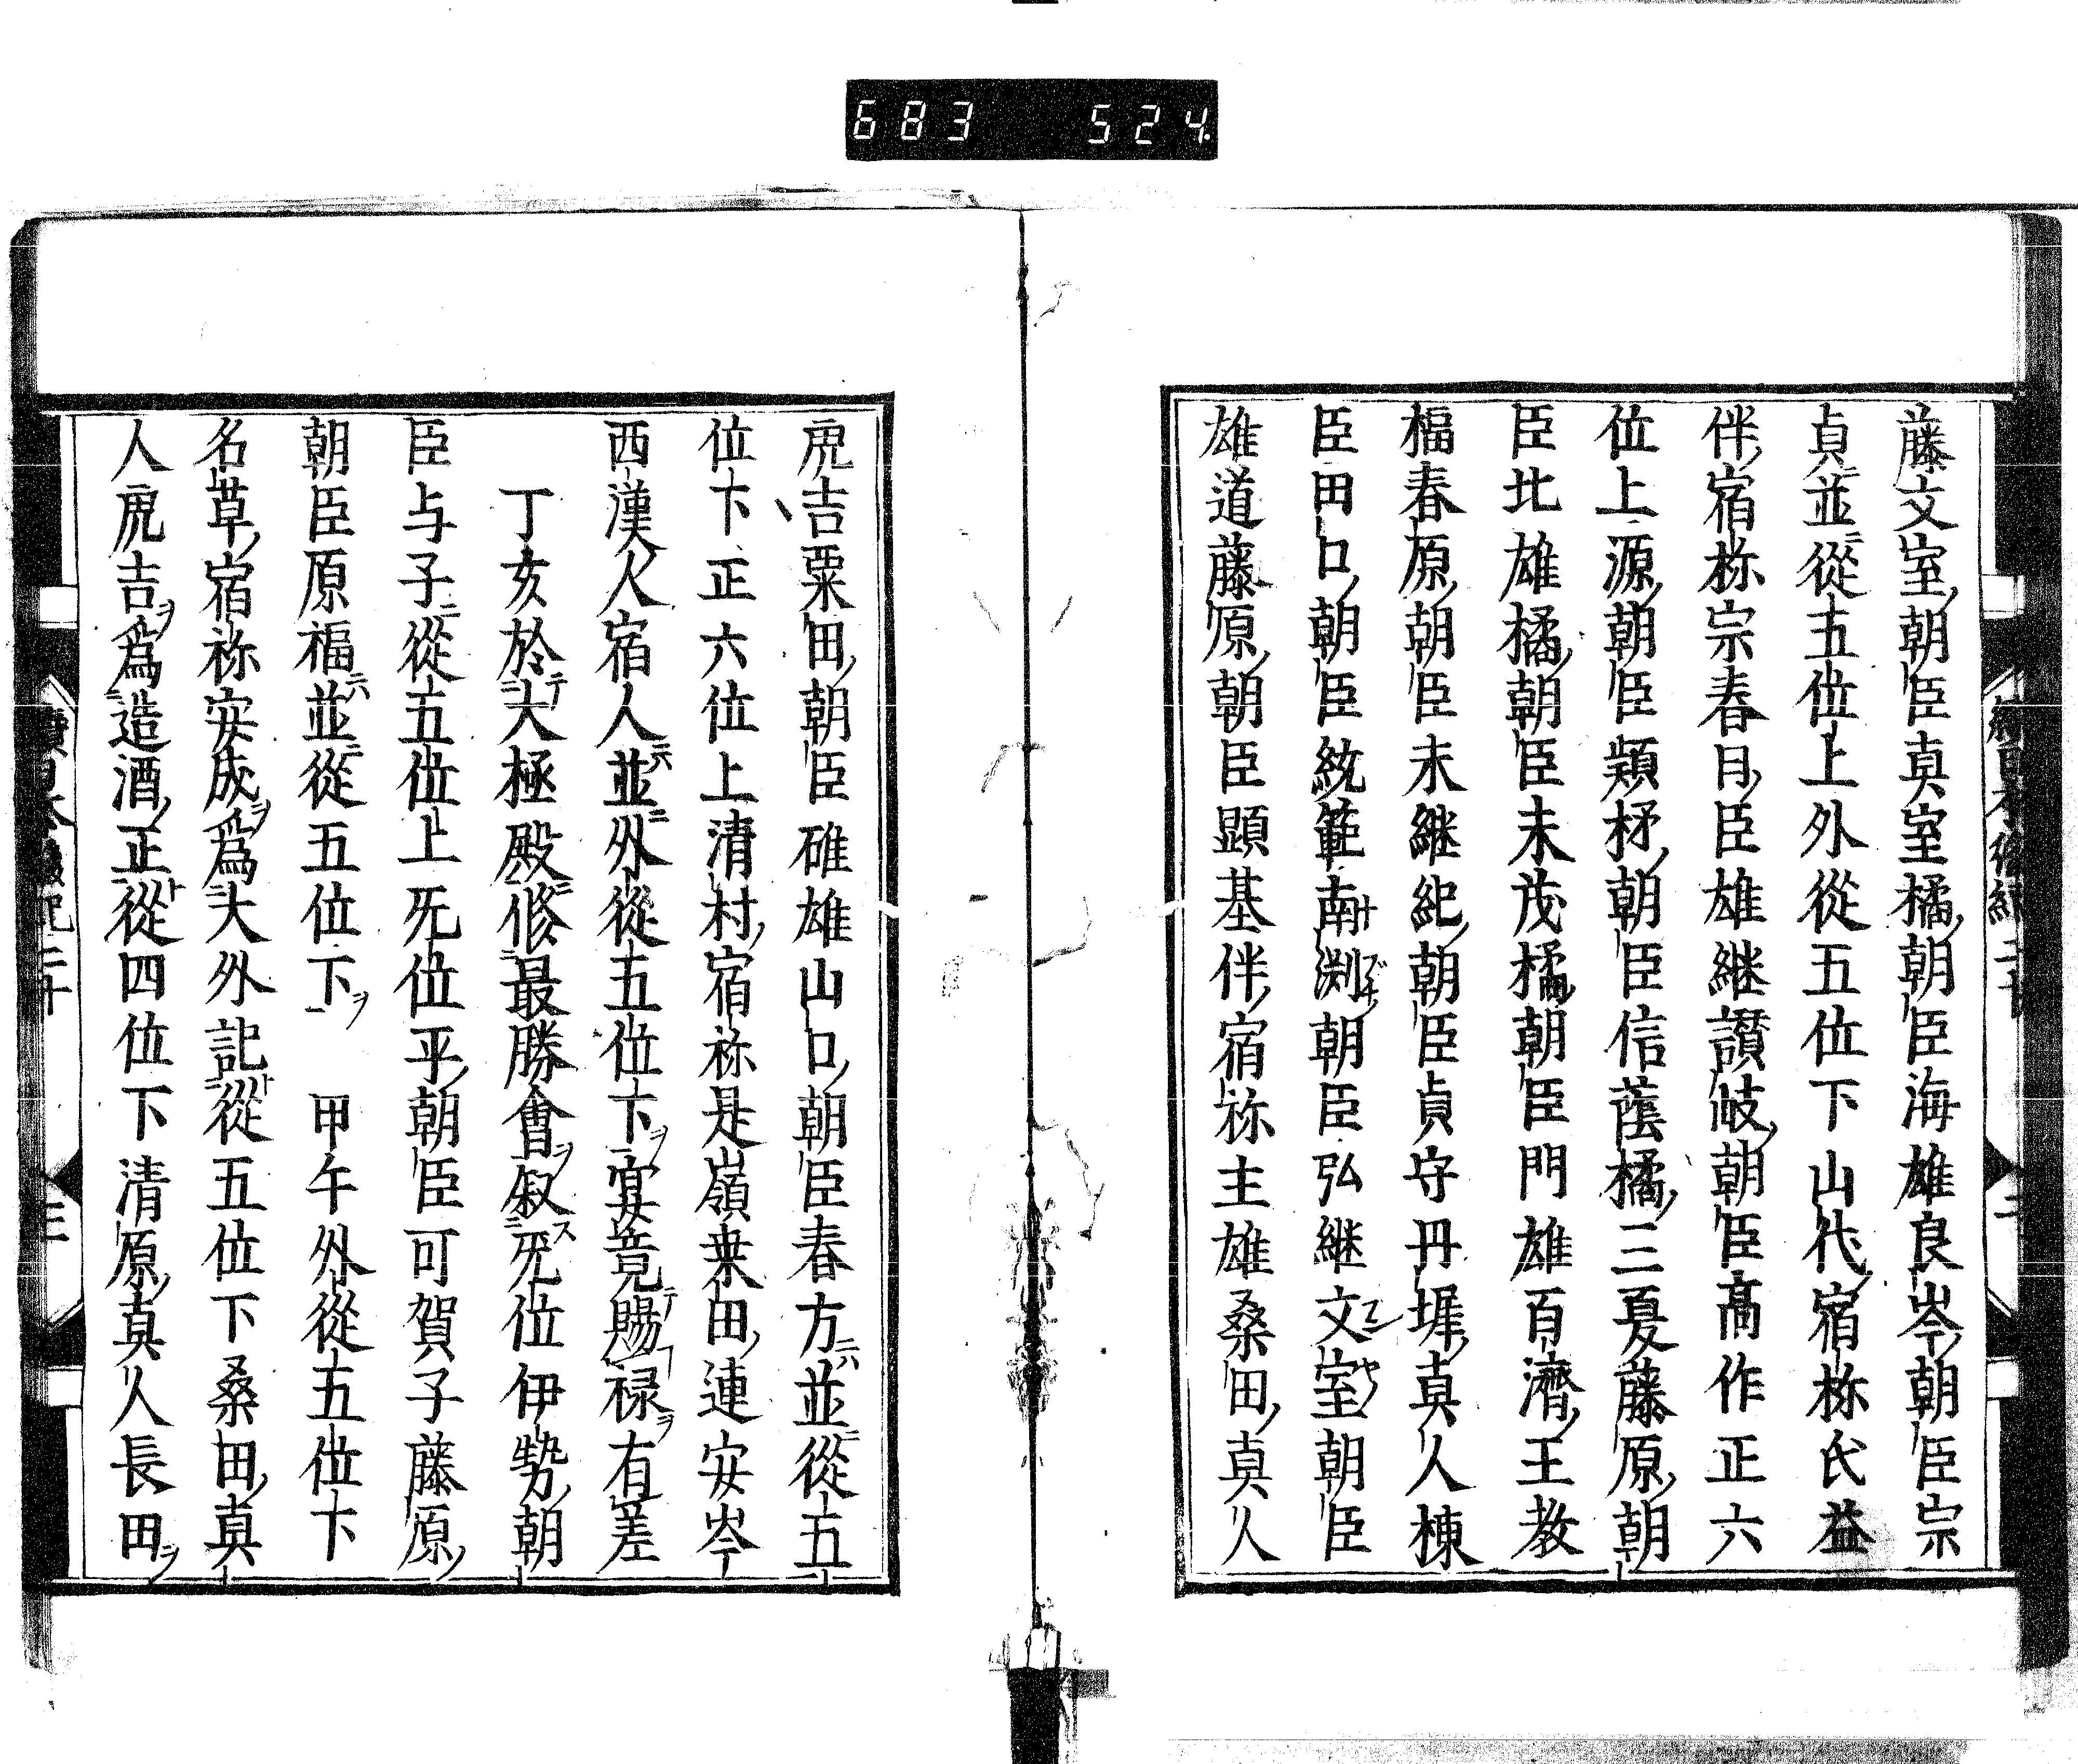 683 524.
藤文室朝臣真室橘朝臣海雄良岑朝臣宗
貞並從五位上外從五位下山代宿祢氏益
伴宿祢宗春日臣雄継讃岐朝臣高作正六
位上源朝臣頴朝臣信蔭橘三夏藤原朝
臣北雄橘朝臣末茂橘朝臣門雄百濟王教
福春原朝臣末継紀朝臣貞守丹墀真人棟
臣田口朝臣統範南渕朝臣弘継文室朝臣
雄道藤原朝臣顕基伴宿祢主雄桑田真人
虎吉粟田朝臣碓雄山口朝臣春方並從五
位下正六位上清村宿祢是嶺桒田連安岑
西漢人宿人並外從五位下宴竟賜禄有差
丁亥於大極殿修最勝會叙无位伊勢朝
臣与子從五位上无位平朝臣可賀子藤原
朝臣原福並從五位下 甲午外從五位下
名草宿祢安成爲大外記從五位下桑田真
人虎吉爲造酒正從四位下清原真人長田